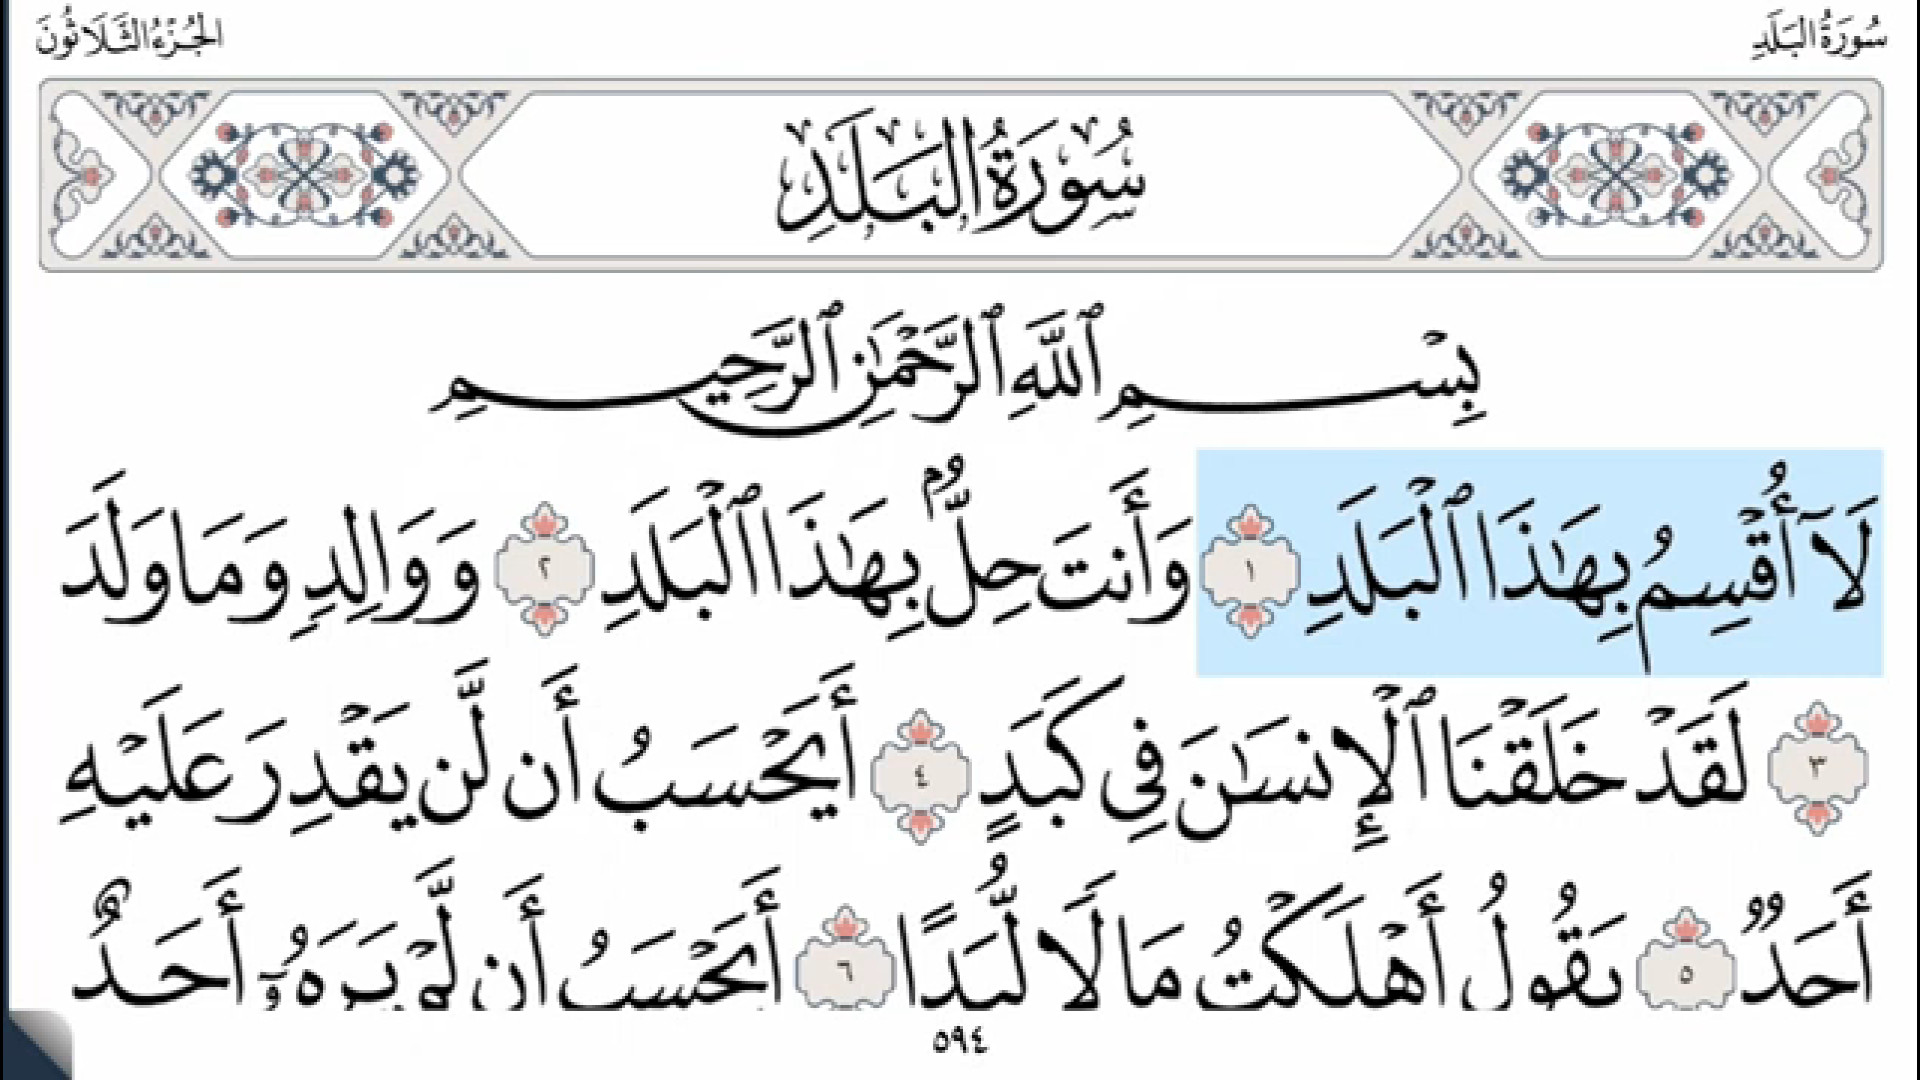 سُورَةُ البَلَدِ
الجُزْءُ الثَّلَاثُونَ
سُورَةُ البَلَدِ
بِسْمِ ٱللَّهِ ٱلرَّحْمَٰنِ ٱلرَّحِيمِ
لَآ أُقْسِمُ بِهَٰذَا ٱلْبَلَدِ ١ وَأَنتَ حِلٌّۢ بِهَٰذَا ٱلْبَلَدِ ٢ وَوَالِدٍ وَمَا وَلَدَ
٣ لَقَدْ خَلَقْنَا ٱلْإِنسَٰنَ فِى كَبَدٍ ٤ أَيَحْسَبُ أَن لَّن يَقْدِرَ عَلَيْهِ
أَحَدٌ ٥ يَقُولُ أَهْلَكْتُ مَالًا لُّبَدًا ٦ أَيَحْسَبُ أَن لَّمْ يَرَهُۥٓ أَحَدٌ
٥٩٤